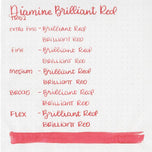 Diamine Brilliant Red
TRB2
extra fine - Brilliant Red
BRILLIANT RED
Fine - Brilliant Red
BRILLIANT RED
Medium - Brilliant Red
BRILLIANT RED
BROAD - Brilliant Red
BRILLIANT RED
FLEX - Brilliant Red
BRILLIANT RED